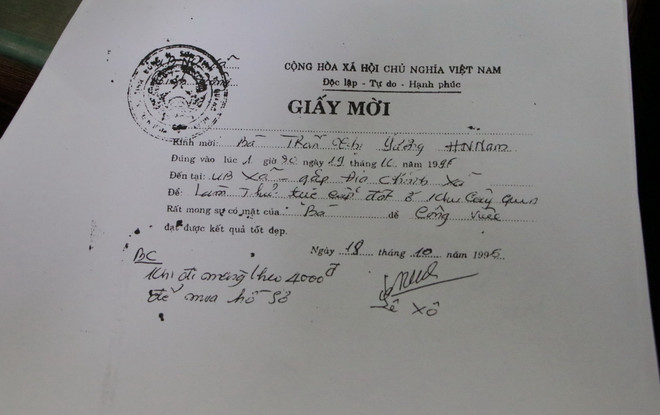 CỘNG HÒA XÃ HỘI CHỦ NGHĨA VIỆT NAM
Độc lập - Tự do - Hạnh phúc
GIẤY MỜI
Kính mời: Bà Trần Thị Hường
Đúng vào lúc giờ 30 ngày 19 tháng 10 năm 1996
Đến tại: UB Xã gặp Địa chính Xã
Để: Làm Thủ tục cấp đất ở Khu Cây quen
Rất mong sự có mặt của Bà để Công việc
đạt được kết quả tốt đẹp.
Ngày 18 tháng 10 năm 1996
BC
Khi đi mang theo 4000đ
để mua hồ sơ
Lê Xô